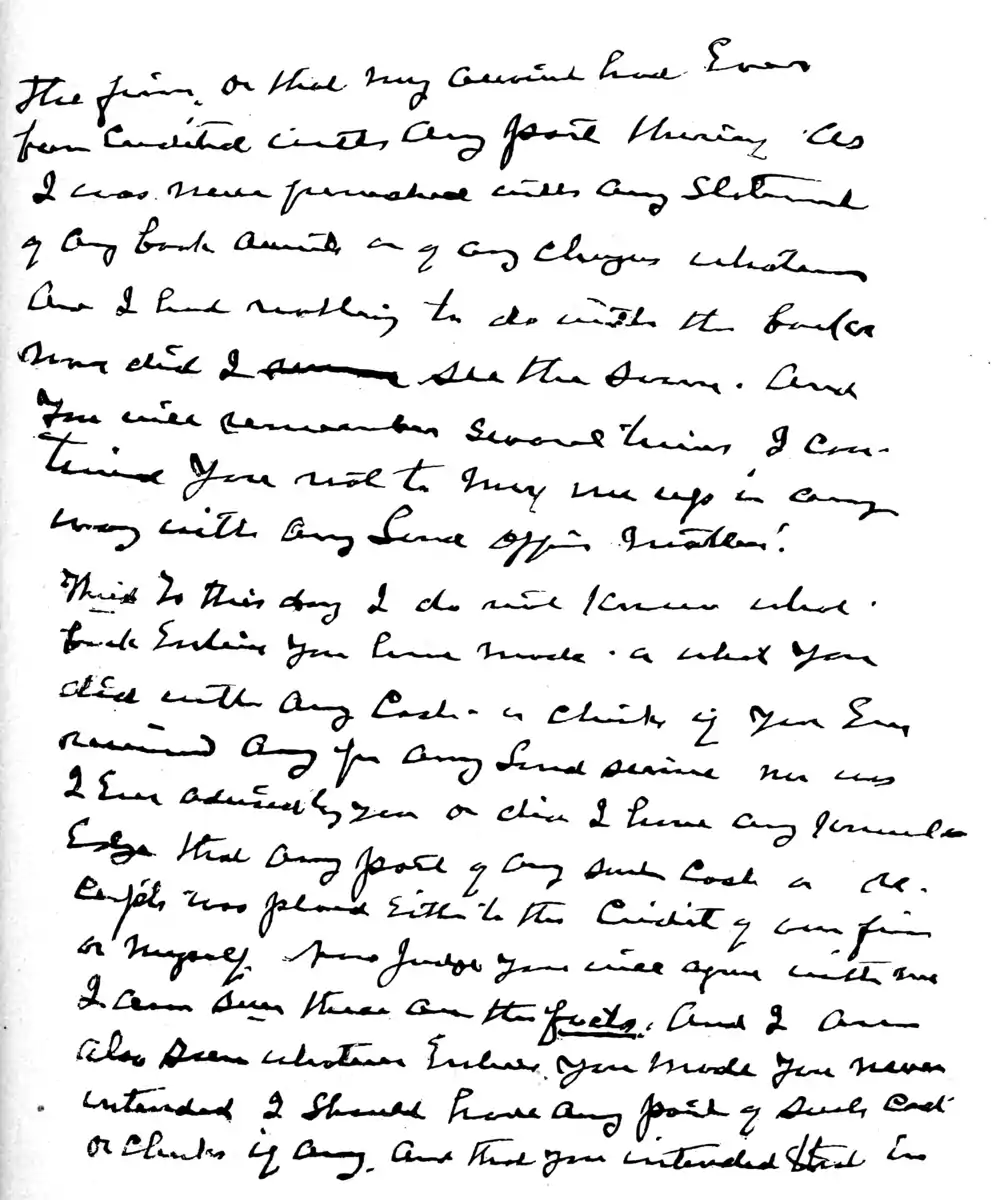 the firm, or that my account had Ever
been Credited with any part thereof as
I was never furnished with any Statement
of any book accounts or of any charges whatever
and I had nothing to do with the books
nor did I see the same. And
You will remember several times I cau-
tioned You not to mix me up in any
way with any Land Office Matters.
This To this day I do not Know what
book Entries You have made or what You
did with any Cash or checks if You Ever
received any for any Land service nor was
I Ever advised by you or did I have any Knowl-
Edge that any part of any such Cash or re-
ceipts was placed Either to the Credit of our firm
or Myself. Now Judge you will agree with me
I am sure these are the facts. And I am
also sure whatever Entries You Made You never
intended I Should have any part of such Cash
or checks if any, and that you intended that in